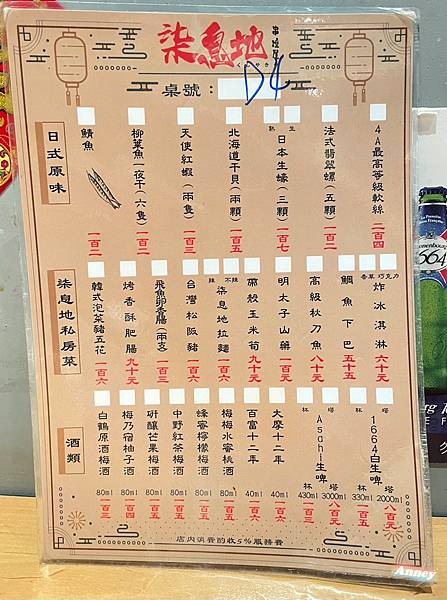 柒息地
串燒屋
桌號：D4
日式原味
4A最高等級軟絲 二百四
法式翡翠螺（五顆） 一百二
熟 生
日本生蠔（三顆） 一百七
北海道干貝（兩顆） 一百五
天使紅蝦（兩隻） 一百三
柳葉魚一夜干（六隻） 一百二
鯖魚 一百二
柒息地私房菜
香草 巧克力
炸冰淇淋 六十元
鯛魚下巴 五十五
高級秋刀魚 八十元
明太子山藥 一百元
帶殼玉米筍 九十元
辣 不辣
柒息地拉麵 一百六
台灣松阪豬 一百六
飛魚卵香腸（兩支） 一百三
烤香酥肥腸 九十元
韓式泡菜豬五花 一百六
酒類
杯 塔
1664白生啤
塔 2000ml 八百元
杯 330ml 一百五
杯 塔
Asahi生啤
塔 3000ml 八百元
杯 430ml 一百三
大摩十二年 40ml 二百元
百富十二年 40ml 二百元
梅梅水蜜桃酒 80ml 一百五
蜂蜜檸檬梅酒 80ml 一百五
中野紅茶梅酒 80ml 一百五
研釀芒果梅酒 80ml 一百五
梅乃宿柚子酒 80ml 一百四
白鶴原酒梅酒 80ml 一百三
店內消費酌收5%服務費
664
Anney